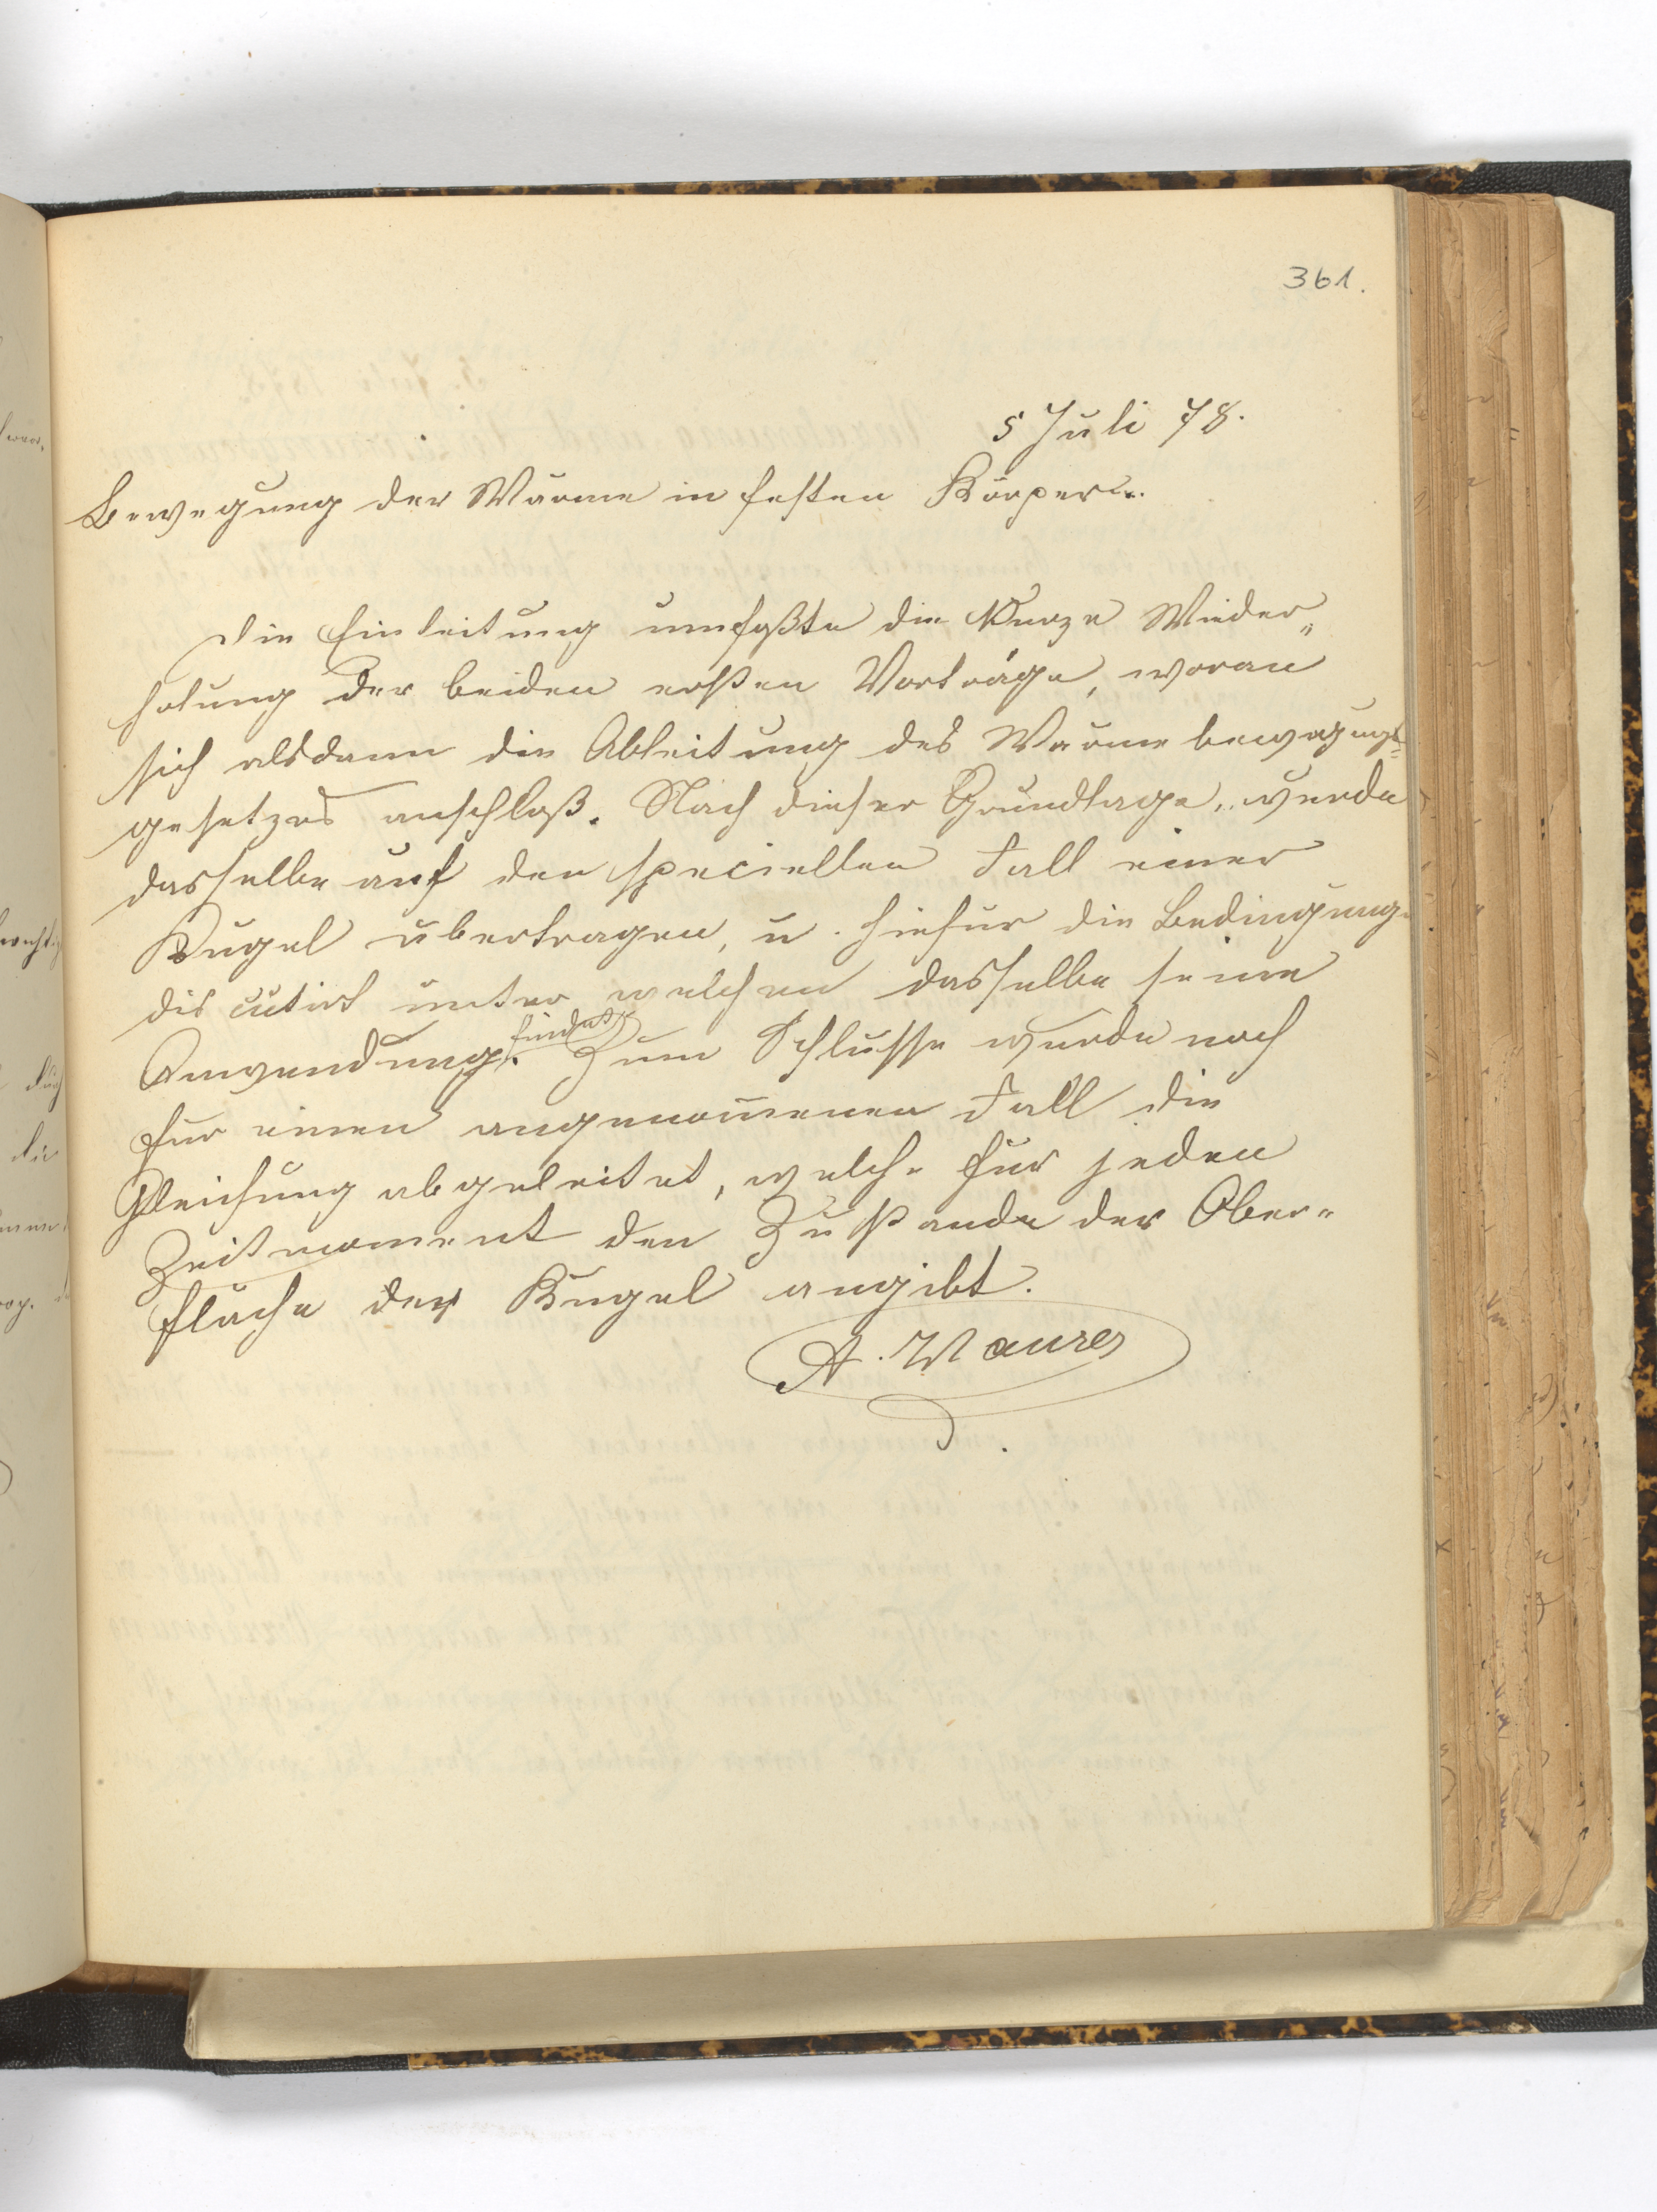 361.
5 Juli 78.
Bewegung der Wärme in festen Körpern.
Die Einleitung umfaßte die Kurze Wieder„
holung der beiden ersten Vorträge, woran
sich alsdann die Ableitung des Wärmebewegungs=
gesetzes anschloß. Nach dieser Grundlage, wurde
dasselbe auf den speciellen Fall einer
Kugel übertragen, u. hiefür die Bedingunge
discutirt unter welchen dasselbe seine
Anwendung findet. Zum Schlusse wurde noch
für einen angenom̄enen Fall die
Gleichung abgeleitet, welche für jeden
Zeitmoment den Zustande der Ober„
fläche der Kugel angibt.
A. Maurer